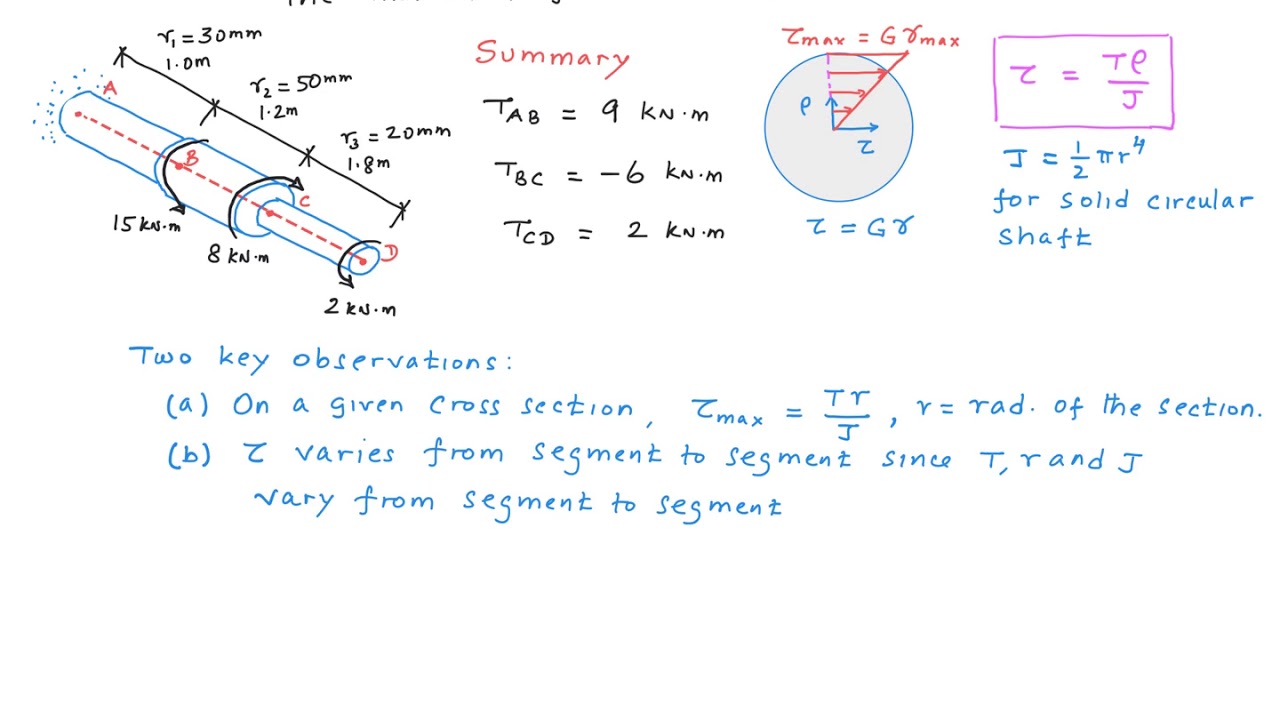 r₁ = 30mm
1.0m
r₂ = 50mm
1.2m
r₃ = 20mm
1.8m
A
B
C
D
15 kN·m
8 kN·m
2 kN·m
Summary
T_AB = 9 kN·m
T_BC = -6 kN·m
T_CD = 2 kN·m
τmax = Gγmax
ρ
τ
τ = Gγ
τ = Tρ/J
J = ½πr⁴
for solid circular
shaft
Two key observations:
(a) On a given cross section, τmax = Tr/J, r = rad. of the section.
(b) τ varies from segment to segment since T, r and J
vary from segment to segment